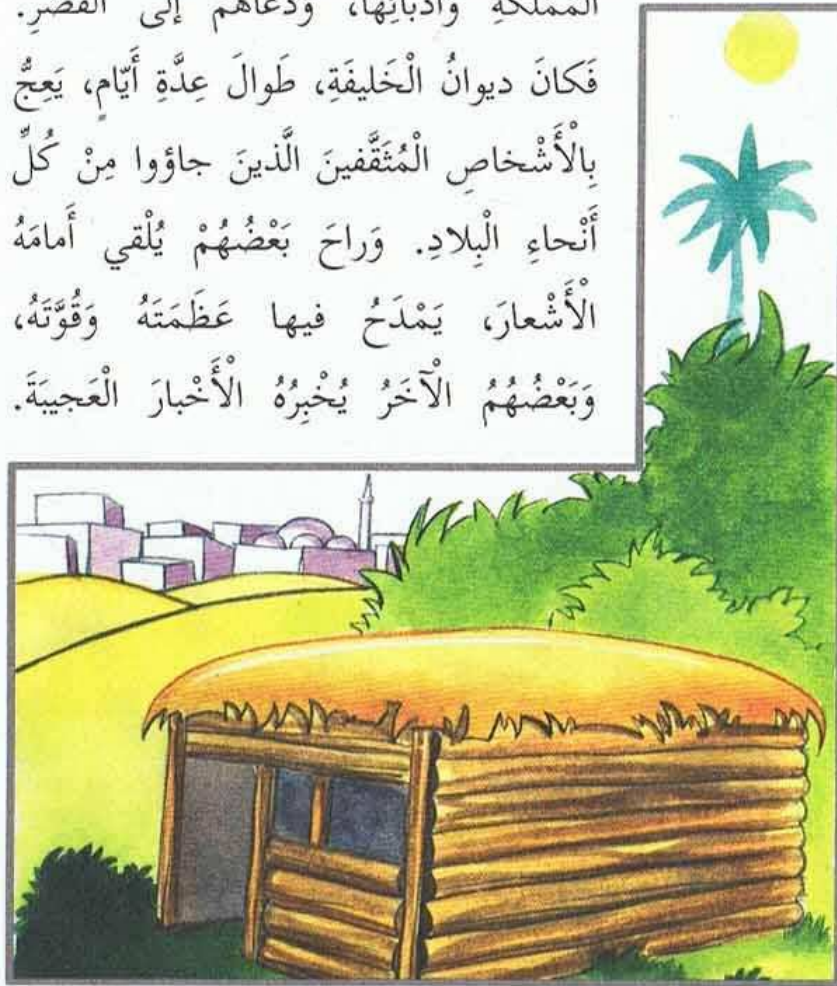 المملكةِ وأدبائِها، ودعاهم إلى القصرِ.
فَكانَ ديوانُ الْخَليفَةِ، طَوالَ عِدَّةِ أَيّامٍ، يَعِجُّ
بِالْأَشْخاصِ الْمُثَقَّفينَ الَّذينَ جاؤوا مِنْ كُلِّ
أَنْحاءِ الْبِلادِ. وَراحَ بَعْضُهُمْ يُلْقي أَمامَهُ
الْأَشْعارَ، يَمْدَحُ فيها عَظَمَتَهُ وَقُوَّتَهُ،
وَبَعْضُهُمُ الْآخَرُ يُخْبِرُهُ الْأَخْبارَ الْعَجيبَةَ.